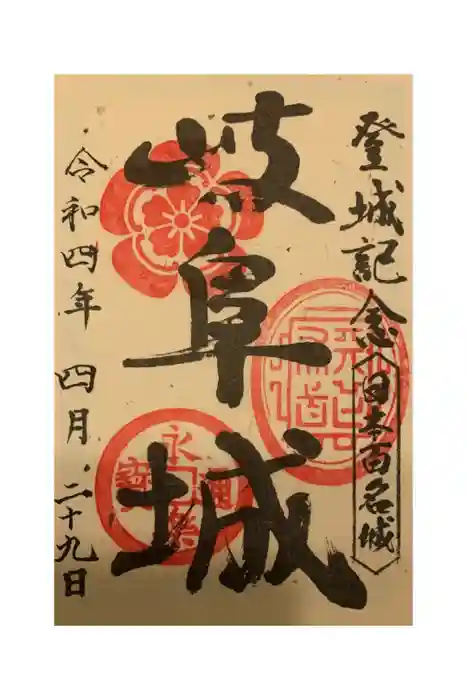 登城記念
日本百名城
岐阜城
令和四年 四月二十九日
永楽通寳